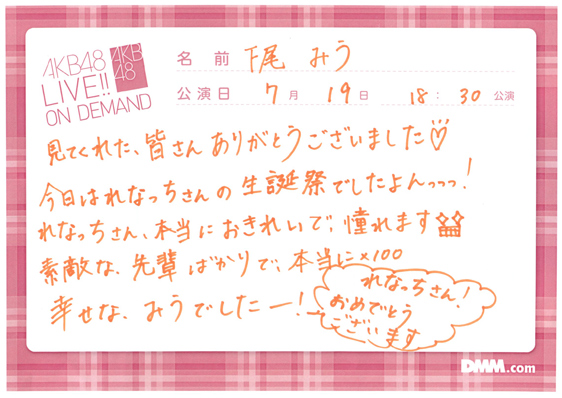 AKB48
LIVE!!
ON DEMAND
AKB
48
名前 下尾 みう
公演日 7月 19日 18:30 公演
見てくれた、皆さんありがとうございました♡
今日はれなっちさんの生誕祭でしたよんっっっ!
れなっちさん、本当におきれいで、憧れます
素敵な、先輩ばかりで、本当に×100
幸せな、みうでしたー!
れなっちさん!
おめでとう
ございます
DMM.com